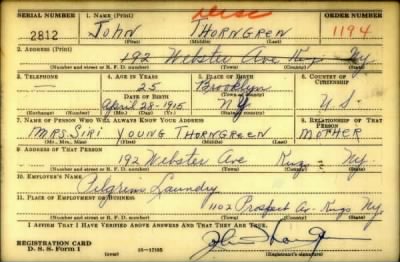 SERIAL NUMBER 1. NAME (Print) ORDER NUMBER
2812 JOHN THORNGREN 1194
2. ADDRESS (Print)
192 Webster Ave Kings NY.
(Number and street or R. F. D. number) (Town) (County) (State)
3. TELEPHONE 4. AGE IN YEARS 5. PLACE OF BIRTH 6. COUNTRY OF CITIZENSHIP
— 25 Brooklyn
DATE OF BIRTH (Town or county)
April-28-1915 N.Y. U.S.
(Exchange) (Number) (Mo.) (Day) (Yr.) (State or country)
7. NAME OF PERSON WHO WILL ALWAYS KNOW YOUR ADDRESS 8. RELATIONSHIP OF THAT PERSON
MRS. SIRI YOUNG THORNGREEN MOTHER
(Mr., Mrs., Miss) (First) (Middle) (Last)
9. ADDRESS OF THAT PERSON
192 Webster Ave Kings - NY.
(Number and street or R. F. D. number) (Town) (County) (State)
10. EMPLOYER'S NAME
Pilgrim Laundry
11. PLACE OF EMPLOYMENT OR BUSINESS
1102 Prospect Av- Kings NY.
(Number and street or R. F. D. number) (Town) (County) (State)
I AFFIRM THAT I HAVE VERIFIED ABOVE ANSWERS AND THAT THEY ARE TRUE.
REGISTRATION CARD
D. S. S. Form 1 (over) 16-17105 (Registrant's signature)